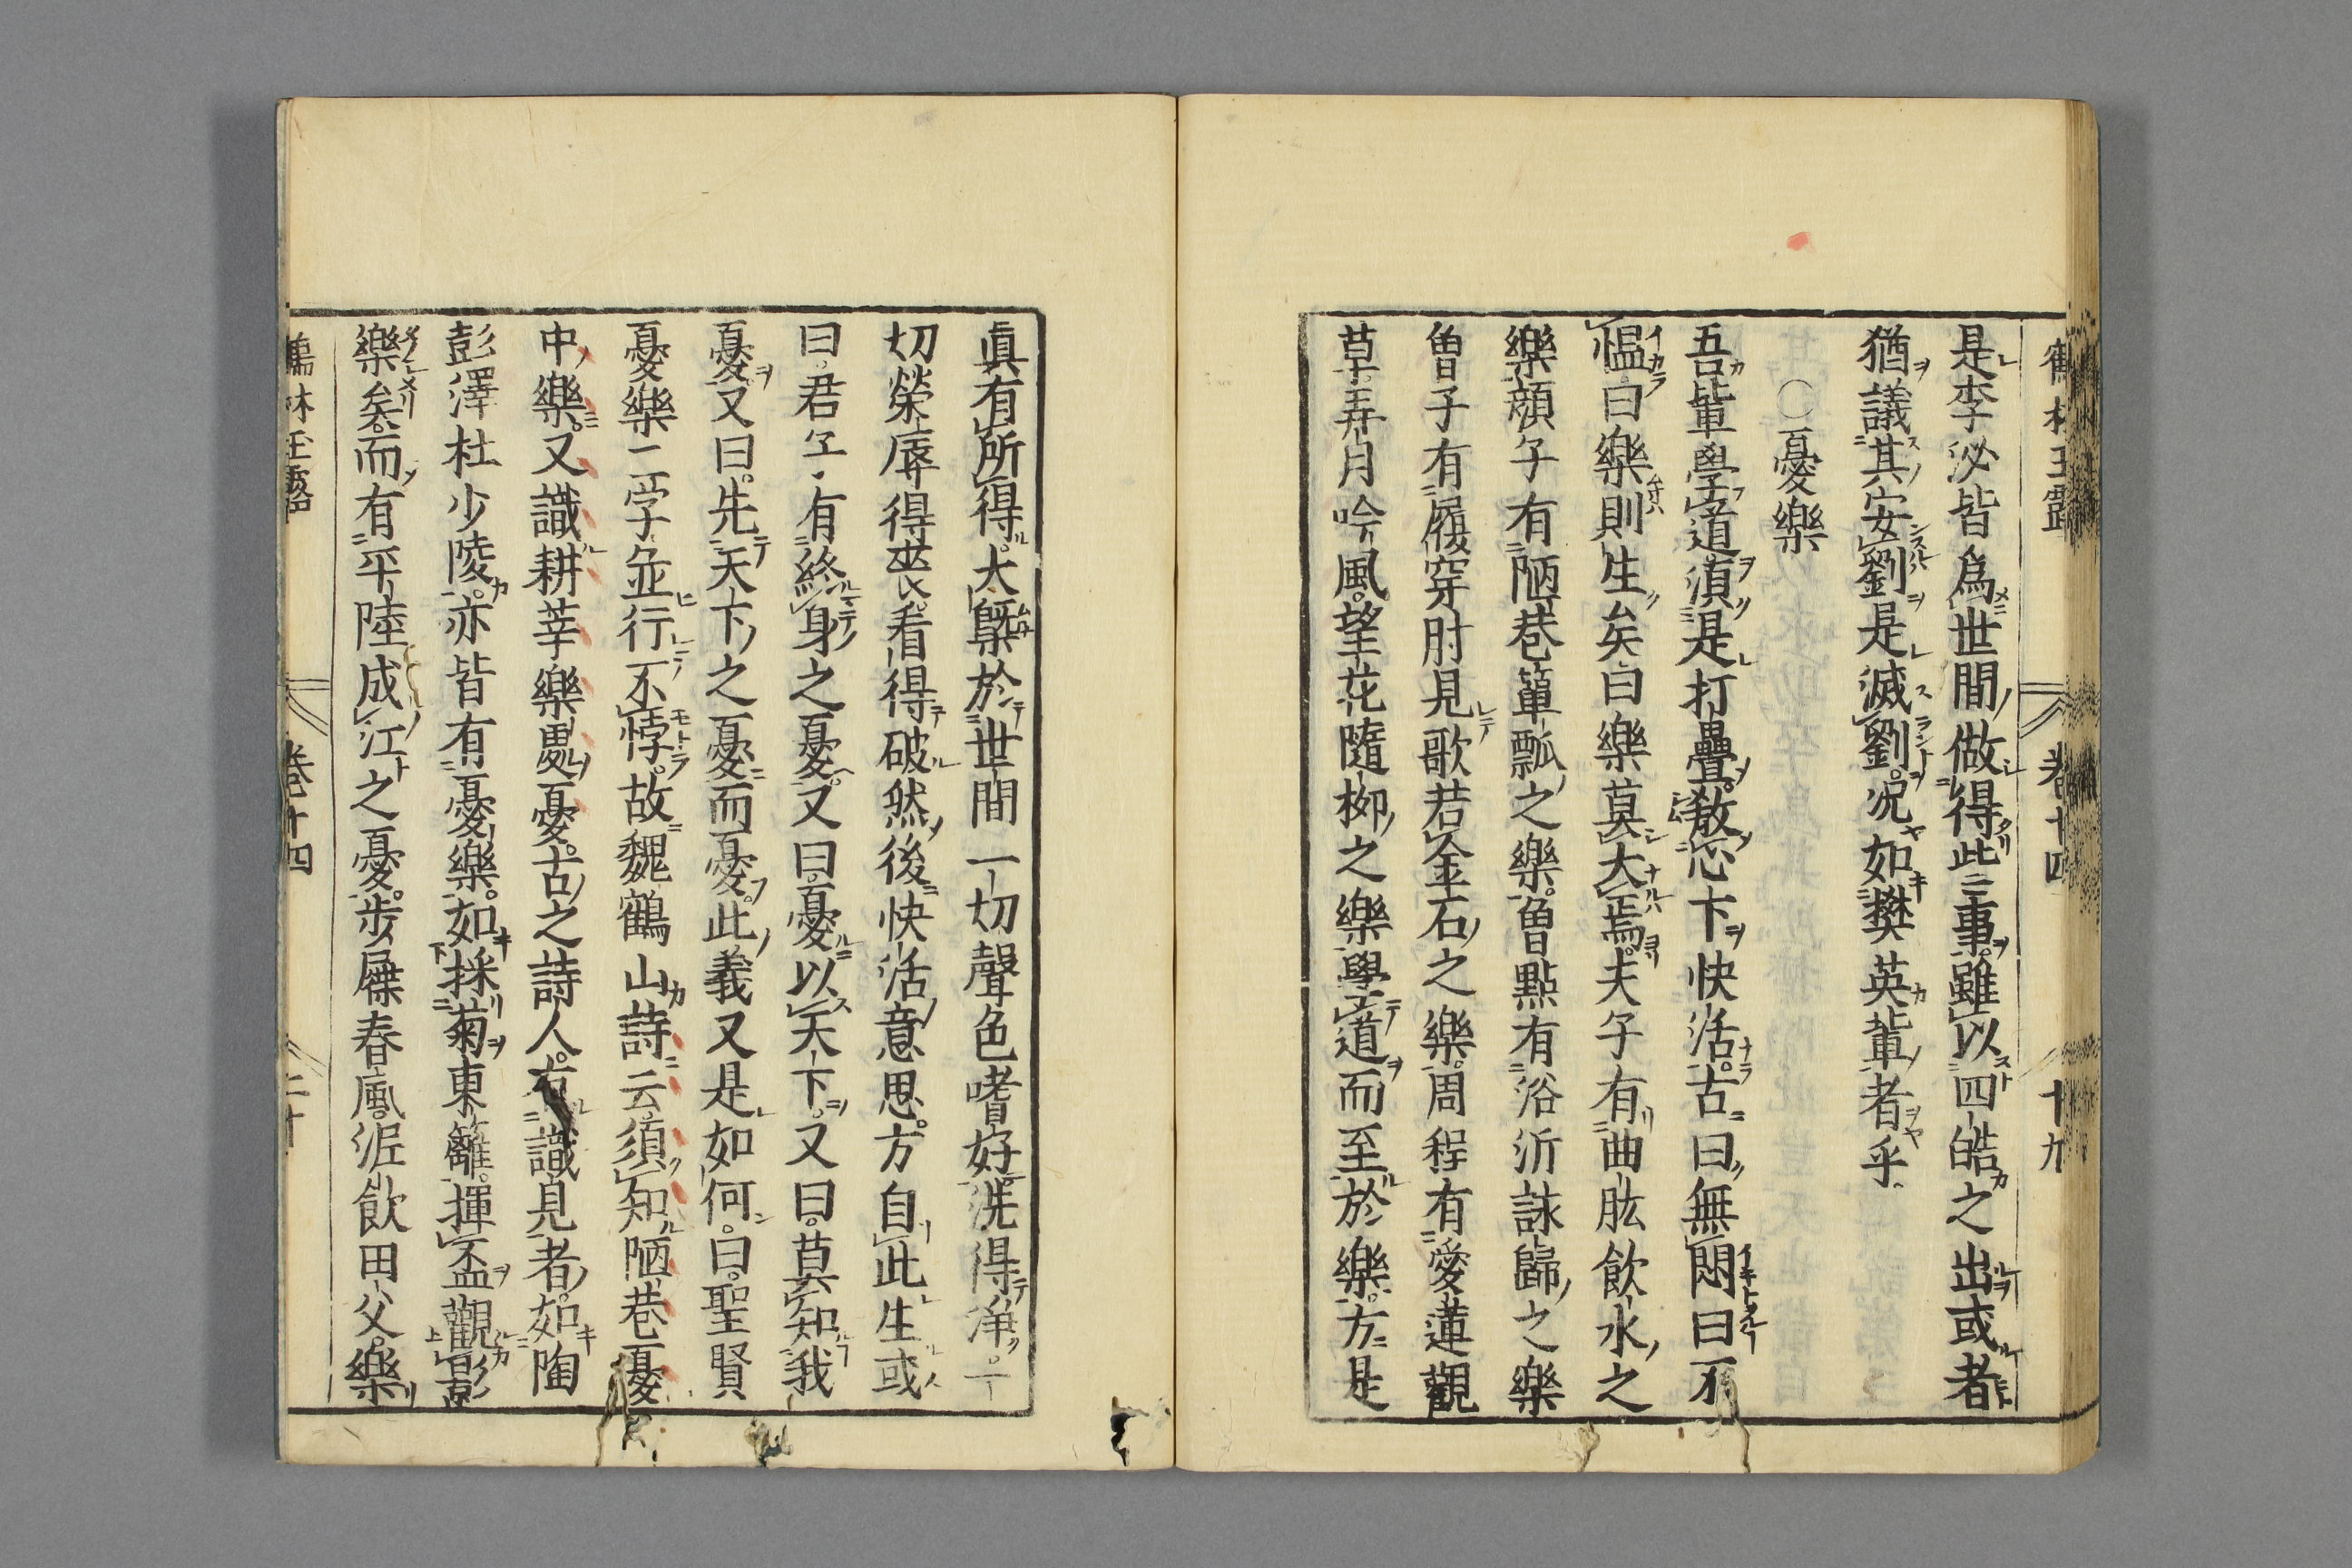 鶴林玉露 卷十四 十九
是李泌皆爲世間做得此二事雖以四皓之出或者
猶議其安劉是滅劉况如樊英輩者乎
○憂樂
吾輩學道須是打疊敎心下快活古曰無悶曰不
慍曰樂則生矣曰樂莫大焉夫子有曲肱飲水之
樂顔子有陋巷簞瓢之樂曾點有浴沂詠歸之樂
曾子有履穿肘見歌若金石之樂周程有愛蓮觀
草弄月吟風望花隨柳之樂學道而至於樂方是
眞有所得大槩於世間一切聲色嗜好洗得淨一
切榮辱得喪看得破然後快活意思方自此生或
曰君子有終身之憂又曰憂以天下又曰莫知我
憂又曰先天下之憂而憂此義又是如何曰聖賢
憂樂二字並行不悖故魏鶴山詩云須知陋巷憂
中樂又識耕莘樂處憂古之詩人有識見者如陶
彭澤杜少陵亦皆有憂樂如採菊東籬揮盃觀影
樂矣而有平陸成江之憂步屧春風泥飲田父樂
鶴林玉露 卷十四 二十